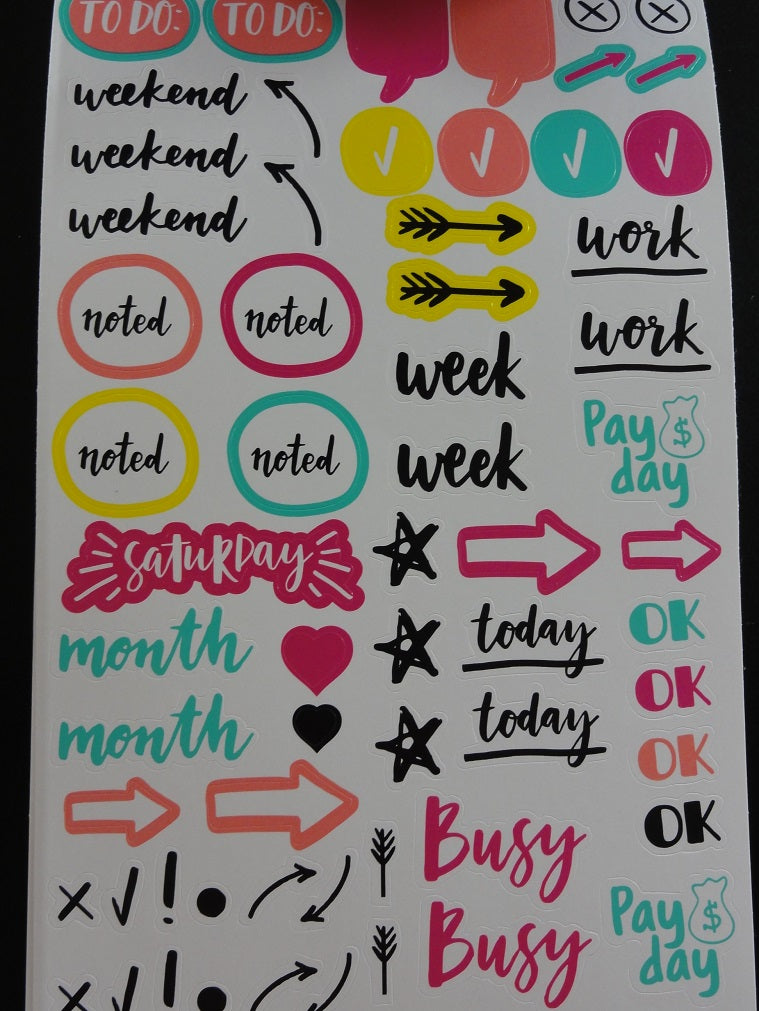 TO DO
TO DO
weekend
weekend
weekend
work
work
noted
noted
week
noted
noted
week
Pay
day
$
SATURDAY
month
month
today
today
OK
OK
OK
OK
Busy
Busy
Pay
day
$